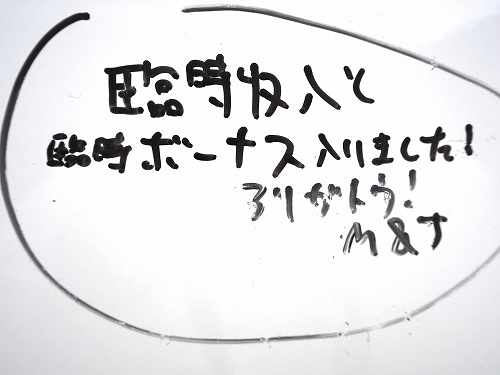 臨時収入と
臨時ボーナス入りました!
アリガトう!
M&T